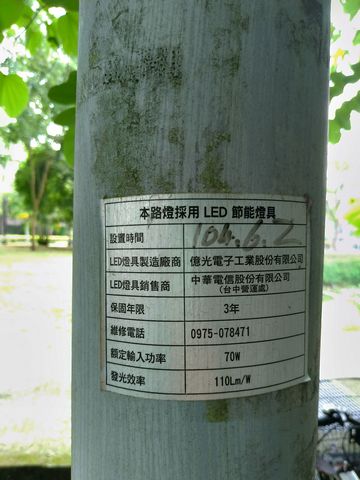 本路燈採用 LED 節能燈具
設置時間 104.6.2
LED燈具製造廠商 億光電子工業股份有限公司
LED燈具銷售商 中華電信股份有限公司
(台中營運處)
保固年限 3年
維修電話 0975-078471
額定輸入功率 70W
發光效率 110Lm/W